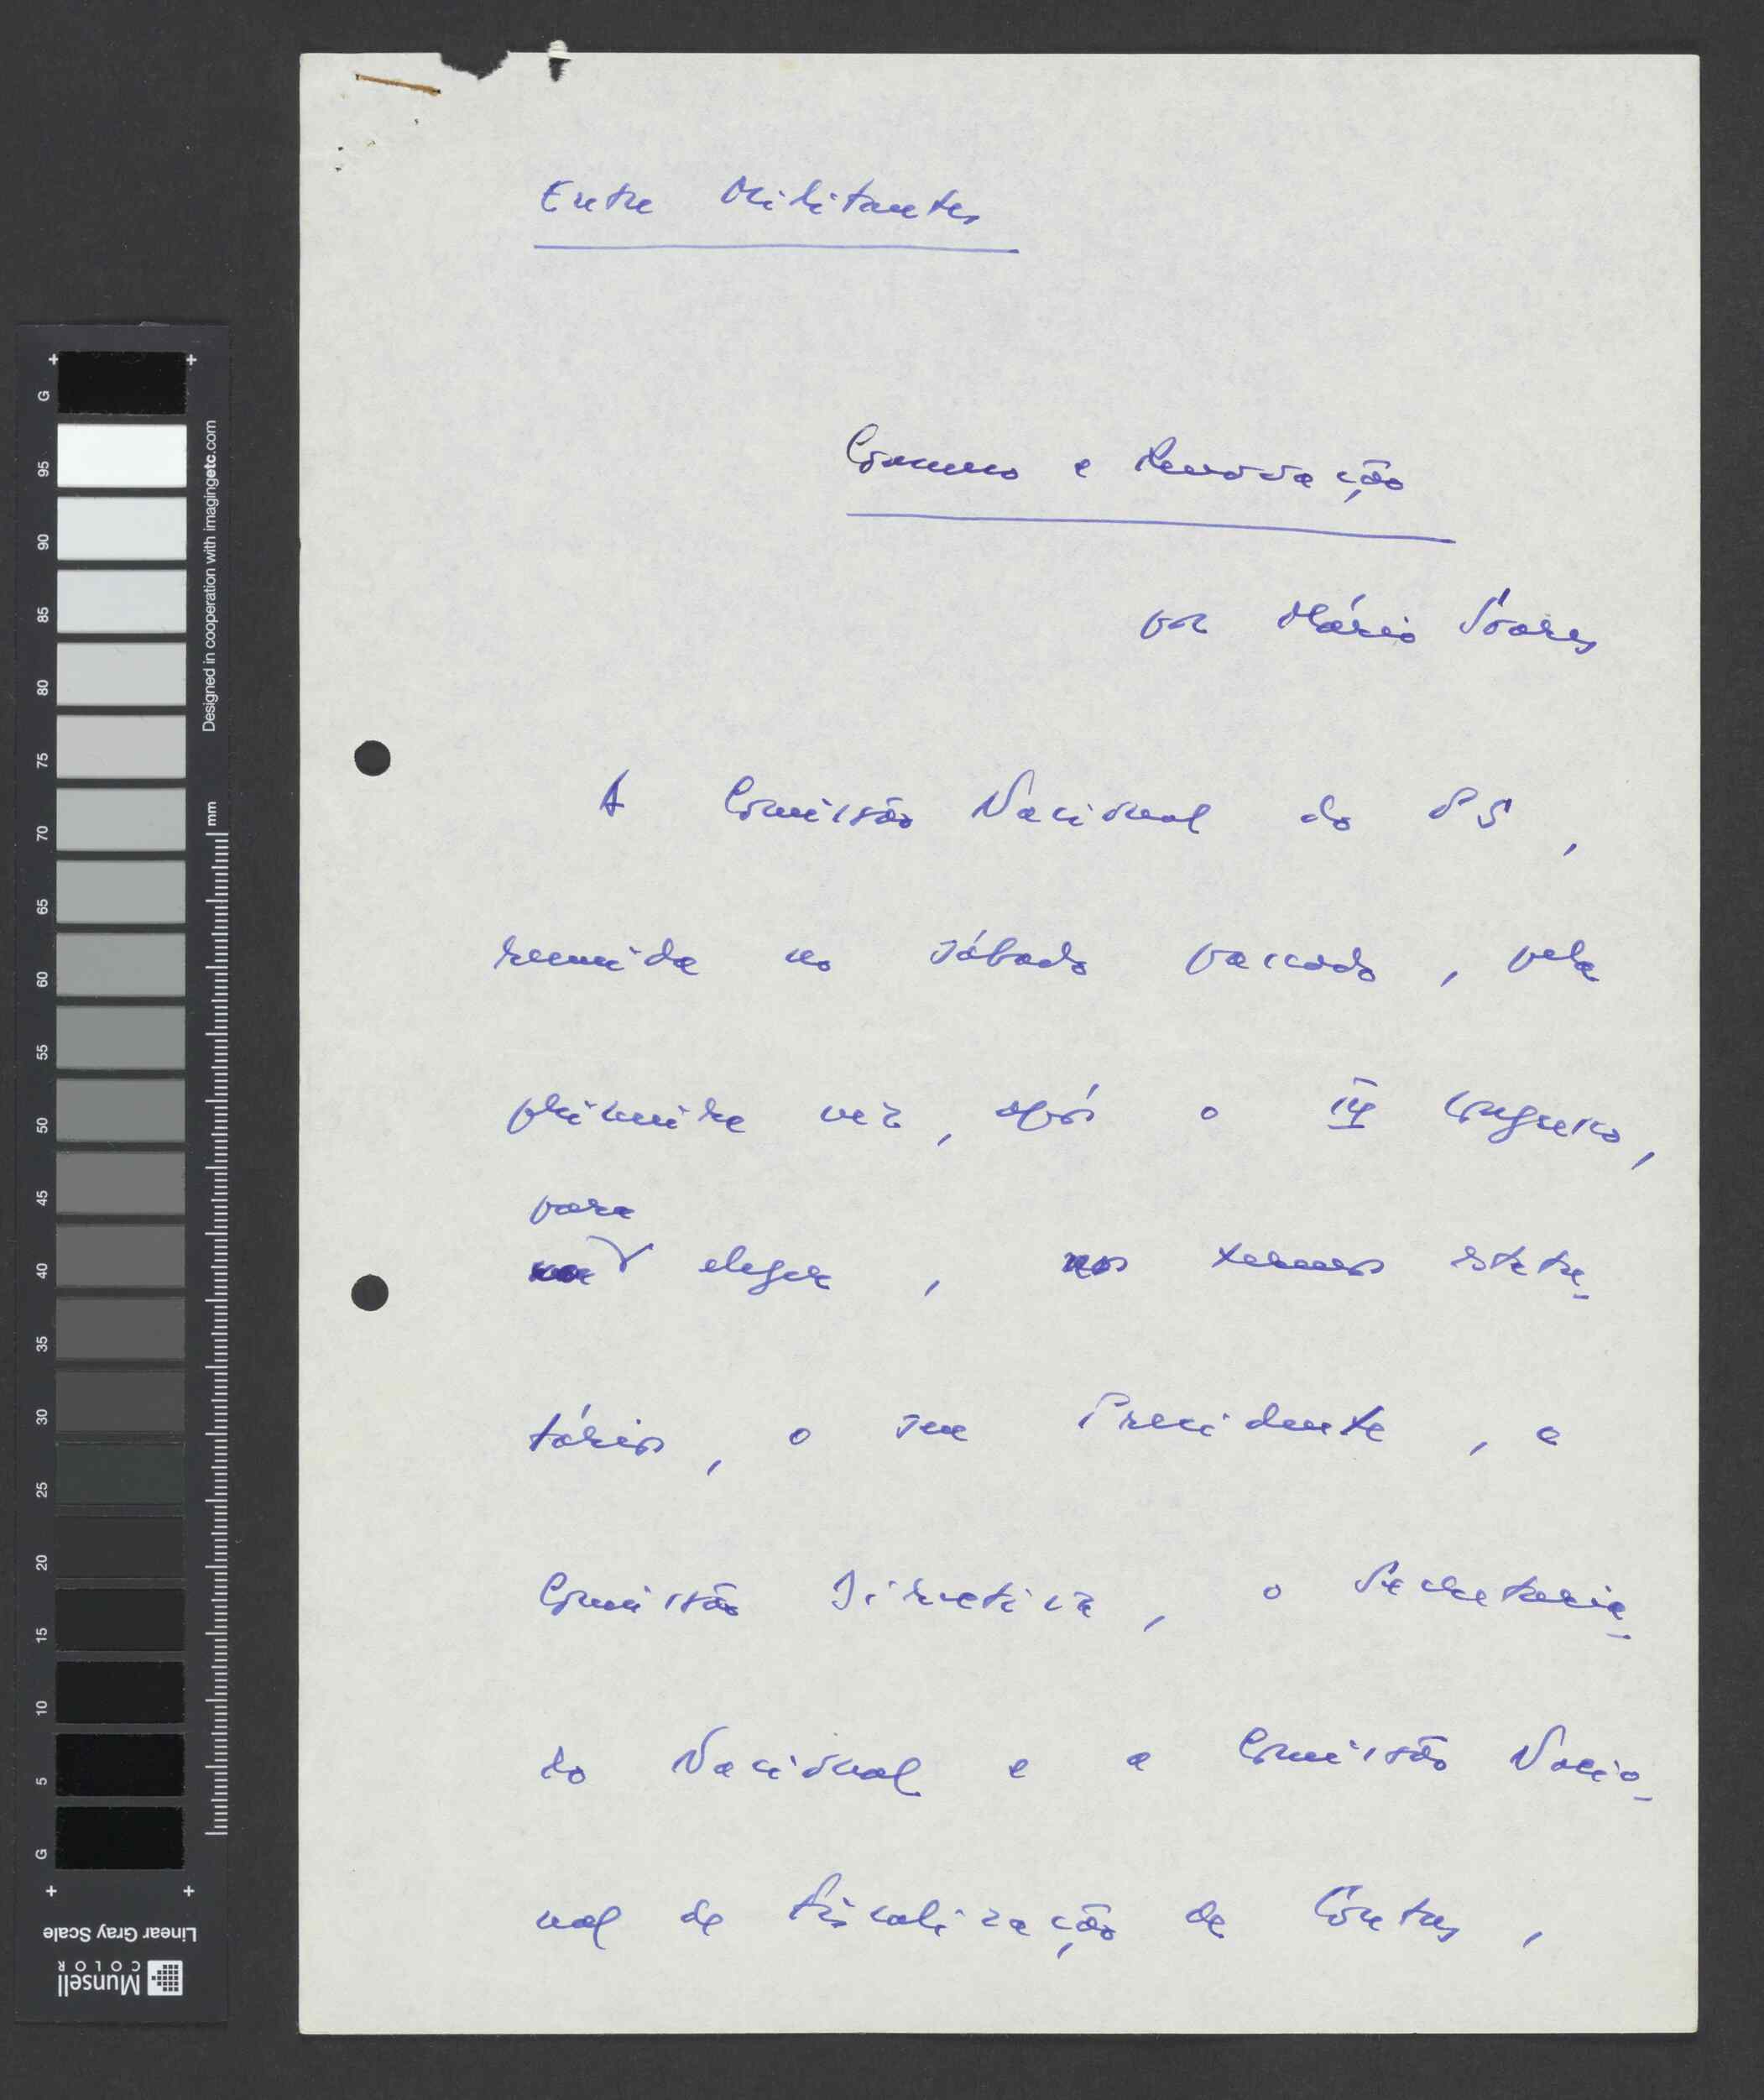 Entre Militantes
e Renovação
por Mário Soares
A Comissão Nacional do PS,
reunida no sábado passado, pela
primeira vez, após o Congresso,
para
eleger, nos termos estatu-
tários, o seu Presidente, a
Comissão Directiva, o Secretaria-
do Nacional e a Comissão Nacio-
nal de Fiscalização de Contas,
G
95
90
85
80
75
70
65
60
55
50
45
40
35
30
25
20
15
10
5
G
Designed in cooperation with imagingetc.com
mm
Linear Gray Scale
Munsell
COLOR